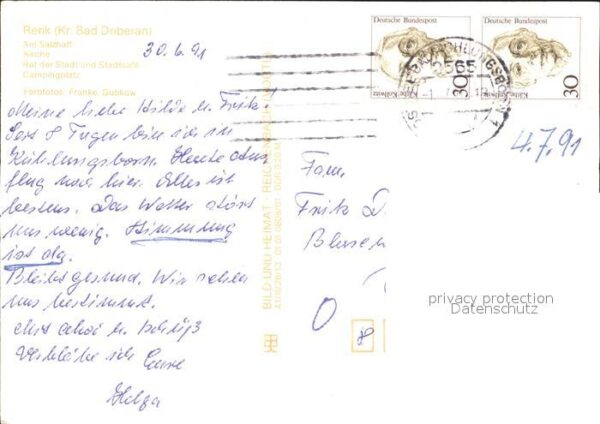 Rerik (Kr. Bad Doberan)
Am Salzhaff
Kirche
Rat der Stadt und Stadtcafé
Campingplatz
Farbfotos: Franke, Gubkow
30.6.91
Meine liebe Hilde u. Fritz!
Seit 8 Tagen bin ich in
Kühlungsborn. Heute Aus-
flug nach hier. Alles ist
bestens. Das Wetter stört
uns wenig. Stimmung
ist da.
Bleibt gesund. Wir sehen
uns bestimmt.
Mit
verbleibe ich Eure
Helga
BILD UND HEIMAT REICHENBACH
Deutsche Bundespost
30
Käthe Kollwitz
Deutsche Bundespost
30
Käthe Kollwitz
2565
4.7.91
Fam.
Fritz D
0
privacy protection
Datenschutz